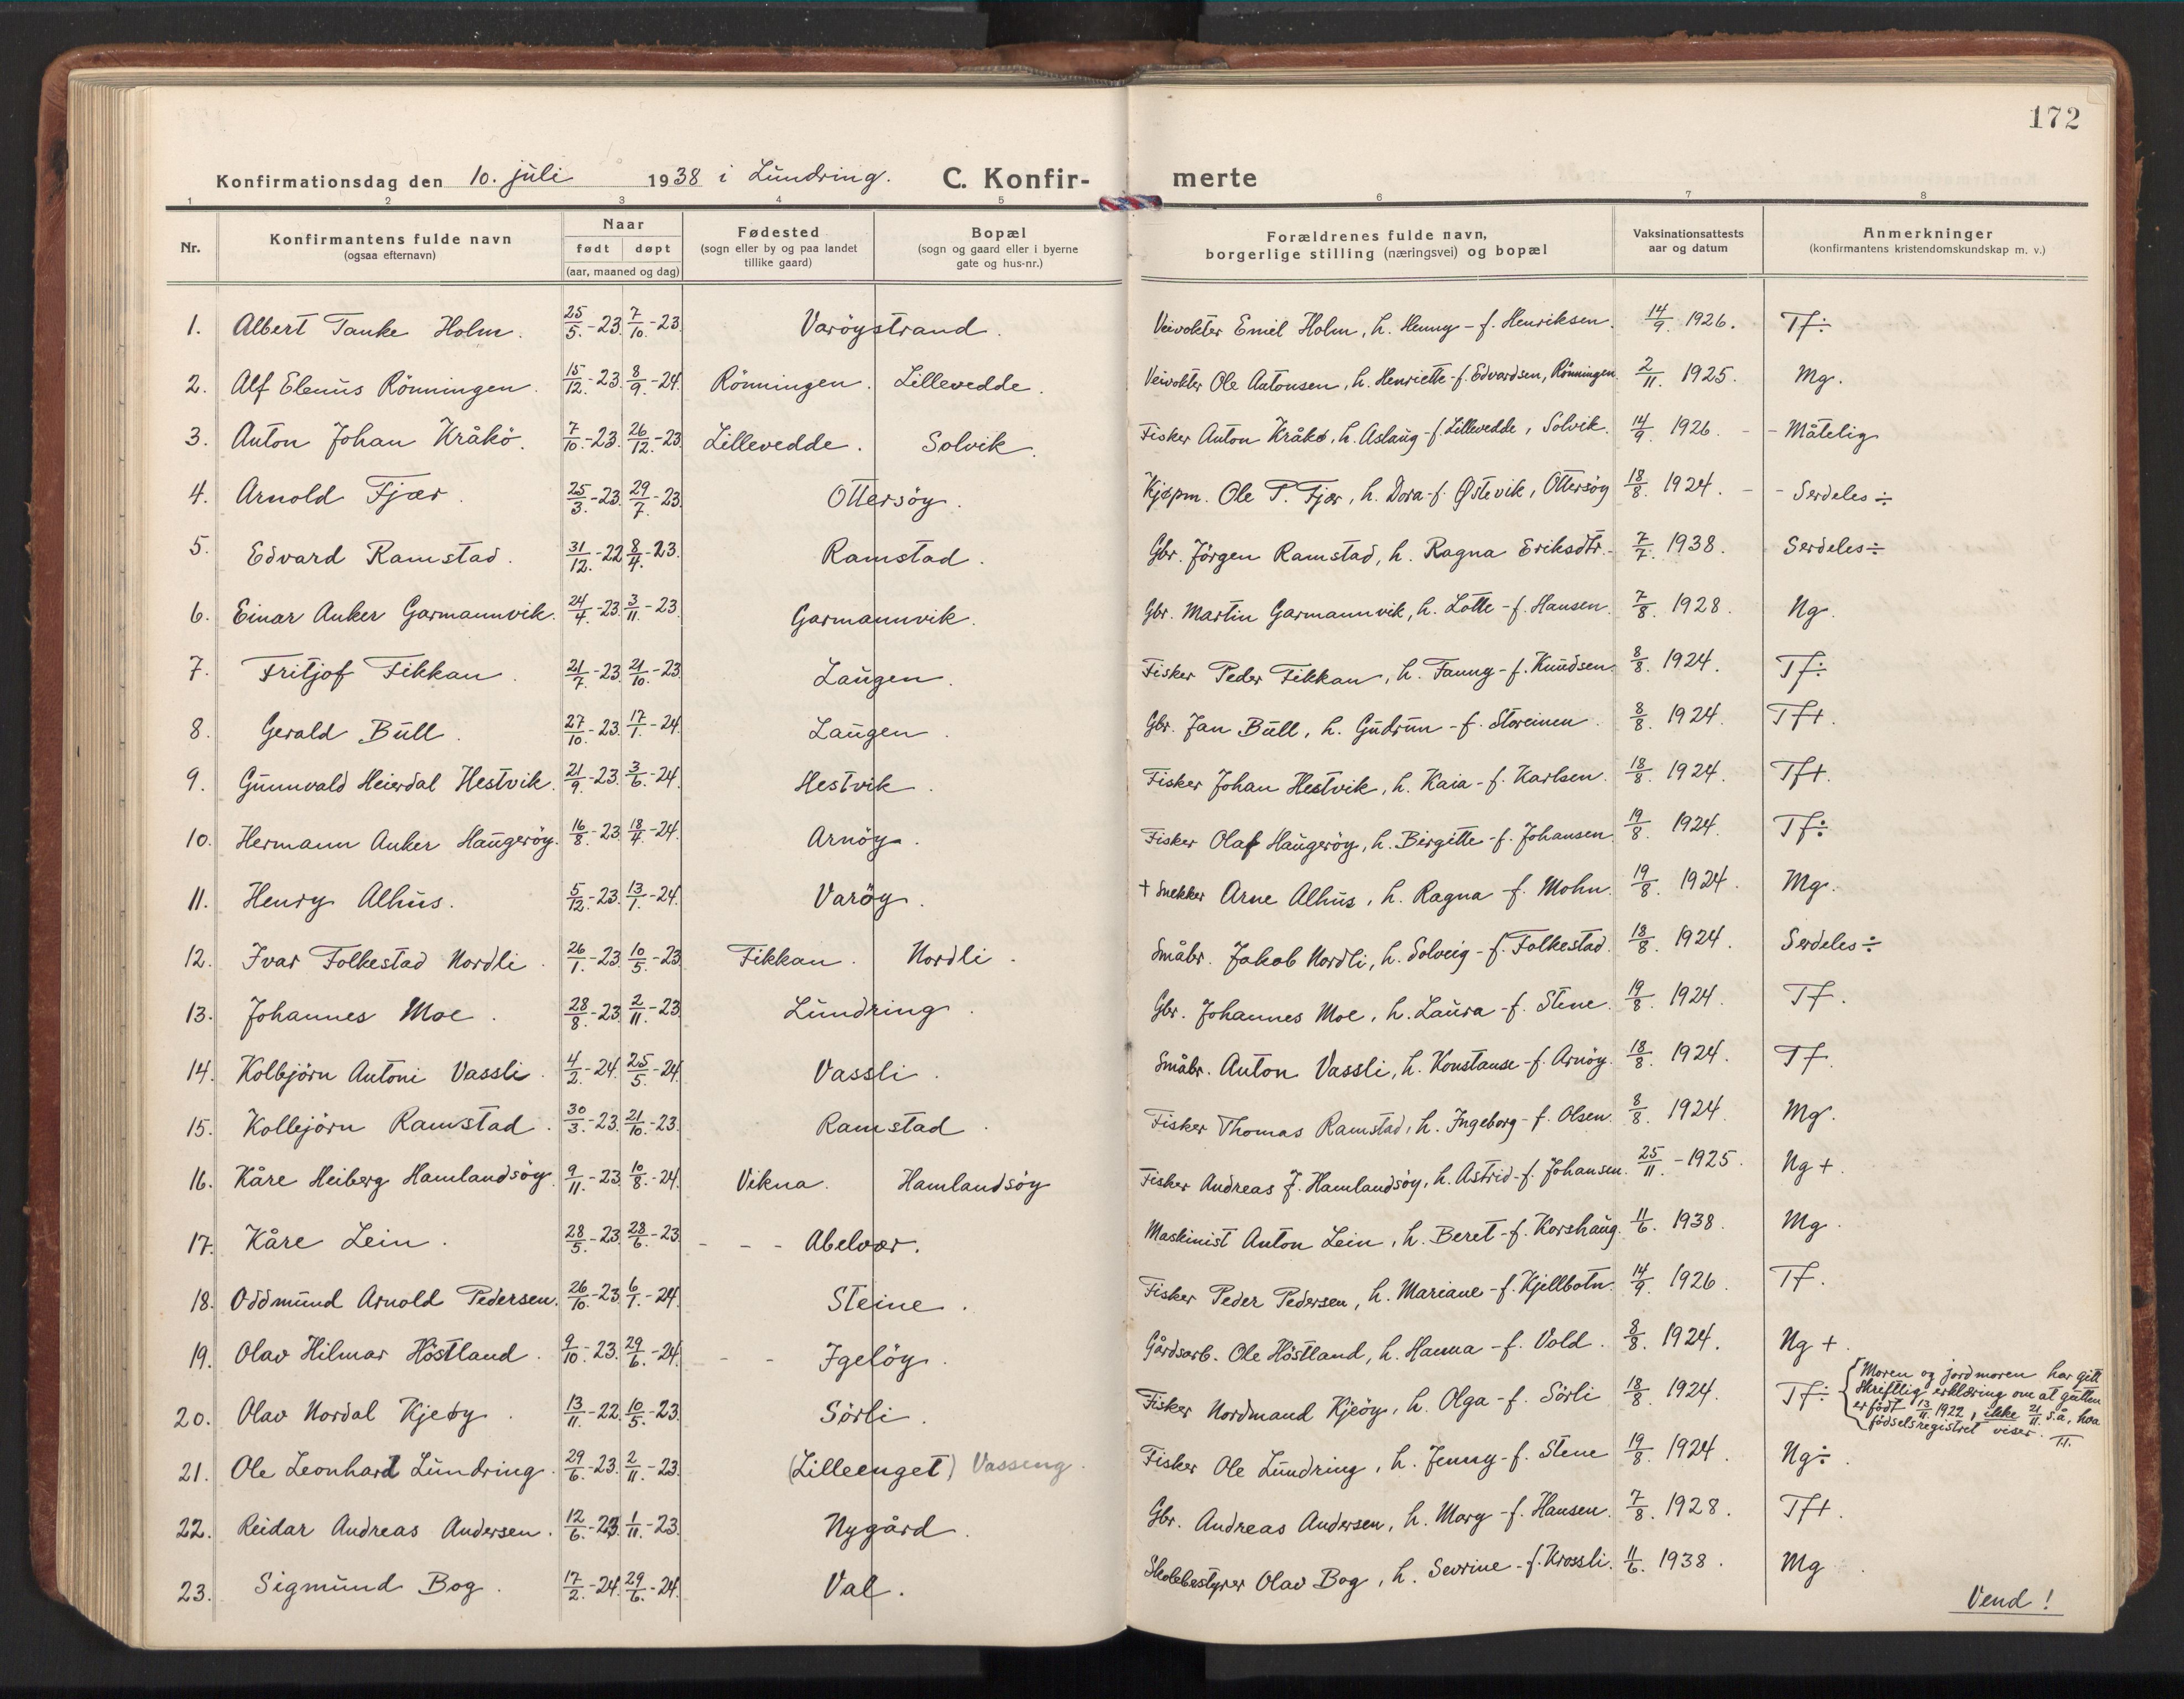 172
Konfirmationsdag den 10. juli 1938 i Lundring. C. Konfir- merte
1 2 3 4 5 6 7 8
Nr. Konfirmantens fulde navn (ogsaa efternavn) Naar født døpt (aar, maaned og dag) Fødested (sogn eller by og paa landet tillike gaard) Bopæl (sogn og gaard eller i byerne gate og hus-nr.) Forældrenes fulde navn, borgerlige stilling (næringsvei) og bopæl Vaksinationsattests aar og datum Anmerkninger (konfirmantens kristendomskundskap m. v.)
1. Albert Tanke Holm. 25/5.-23. 7/10.-23. Varöystrand. Veivokter Emil Holm, h. Henny - f. Henriksen. 14/9. 1926. Tf÷
2. Alf Elenus Rönningen. 15/12.-23. 8/9.-24. Rönningen. Lillevedde. Veivokter Ole Antonsen, h. Henriette - f. Edvardsen, Rönningen. 2/11. 1925. Mg.
3. Anton Johan Kråkö. 7/10.-23. 26/12.-23. Lillevedde. Solvik. Fisker Anton Kråkø, h. Aslaug - f. Lillevedde, Solvik. 14/9. 1926. - - Måtelig
4. Arnold Fjær. 25/3.-23. 29/7.-23. Ottersöy. Kjøpm. Ole P. Fjær, h. Dora - f. Østevik, Ottersøy 18/8. 1924. - - Serdeles ÷
5. Edvard Ramstad. 31/12.-22 8/4.-23. Ramstad. Gbr. Jörgen Ramstad, h. Ragna Eriksdtr. - 7/7. 1938. Serdeles ÷
6. Einar Anker Garmannvik. 24/4.-23. 3/11.-23. Garmannvik. Gbr. Martin Garmannvik, h. Lotte - f. Hansen. 7/8. 1928. Ng.
7. Fritjof Fikkan. 21/7.-23. 21/10.-23. Laugen. Fisker Peder Fikkan, h. Fanny - f. Knudsen. 8/8. 1924. Tf÷
8. Gerald Bull. 27/10.-23. 17/1.-24. Laugen. Gbr. Jan Bull, h. Gudrun - f. Storeinen. 8/8. 1924. Tf+.
9. Gunnvald Heierdal Hestvik. 21/9.-23. 3/6.-24. Hestvik. Fisker Johan Hestvik, h. Kaia - f. Karlsen. 18/8. 1924. Tf+.
10. Hermann Anker Haugeröy. 16/8.-23. 18/4.-24. Arnöy. Fisker Olaf Haugeröy, h. Birgitte - f. Johansen. 19/8. 1924. Tf÷
11. Henry Alhus. 5/12.-23. 13/1.-24. Varöy. + Snekker Arne Alhus, h. Ragna - f. Mohn. 19/8. 1924. Mg.
12. Ivar Folkestad Nordli. 26/1.-23. 10/5.-23. Fikkan. Nordli. Småbr. Jakob Nordli, h. Solveig - f. Folkestad. 18/8. 1924. Serdeles ÷
13. Johannes Moe. 28/8.-23. 2/11.-23. Lundring. Gbr. Johannes Moe, h. Laura - f. Stene. 19/8. 1924. Tf.
14. Kolbjörn Antoni Vassli. 4/2.-24. 25/5.-24. Vassli. Småbr. Anton Vassli, h. Konstanse - f. Arnöy. 18/8. 1924. Tf.
15. Kolbjörn Ramstad. 30/3.-23. 21/10.-23. Ramstad. Fisker Thomas Ramstad, h. Ingeborg - f. Olsen. 8/8. 1924. Mg.
16. Kåre Heiberg Hamlandsöy. 9/11.-23. 10/8.-24. Vikna. Hamlandsöy Fisker Andreas J. Hamlandsöy, h. Astrid - f. Johansen. 25/11. - 1925. Ng +.
17. Kåre Lein. 28/5.-23. 28/6.-23. - - - Abelvær. Maskinist Anton Lein, h. Beret - f. Korshaug. 11/6. 1938. Mg.
18. Oddmund Arnold Pedersen. 26/10.-23. 6/1.-24. Steine. Fisker Peder Pedersen, h. Mariane - f. Kjellbotn. 14/9. 1926. Tf.
19. Olav Hilmar Höstland. 9/10.-23. 29/6.-24. - - Igelöy. Gårdsarb. Ole Höstland, h. Hanna - f. Vold. 8/8. 1924. Ng +.
20. Olav Nordal Kjeöy. 13/11.-22. 10/5.-23. Sörli. Fisker Nordmand Kjeöy, h. Olga - f. Sörli 18/8. 1924. Tf÷
Moren og jordmoren har gitt
skriftlig erklæring om at gutten
er født 13/11. 1922, ikke 21/11. s.å., hva
födselsregistret viser. T.t.
21. Ole Leonhard Lundring. 29/6.-23. 2/11.-23. (Lilleenget) Vasseng. Fisker Ole Lundring, h. Jenny - f. Stene 19/8. 1924. Ng÷.
22. Reidar Andreas Andersen. 12/6.-23. 1/11.-23. Nygård. Gbr. Andreas Andersen, h. Mary - f. Hansen. 7/8. 1928. Tf+.
23. Sigmund Bog. 17/2.-24. 29/6.-24. Val. Skolebestyrer Olav Bog, h. Sevrine - f. Krossli. 11/6. 1938. Mg.
Vend!